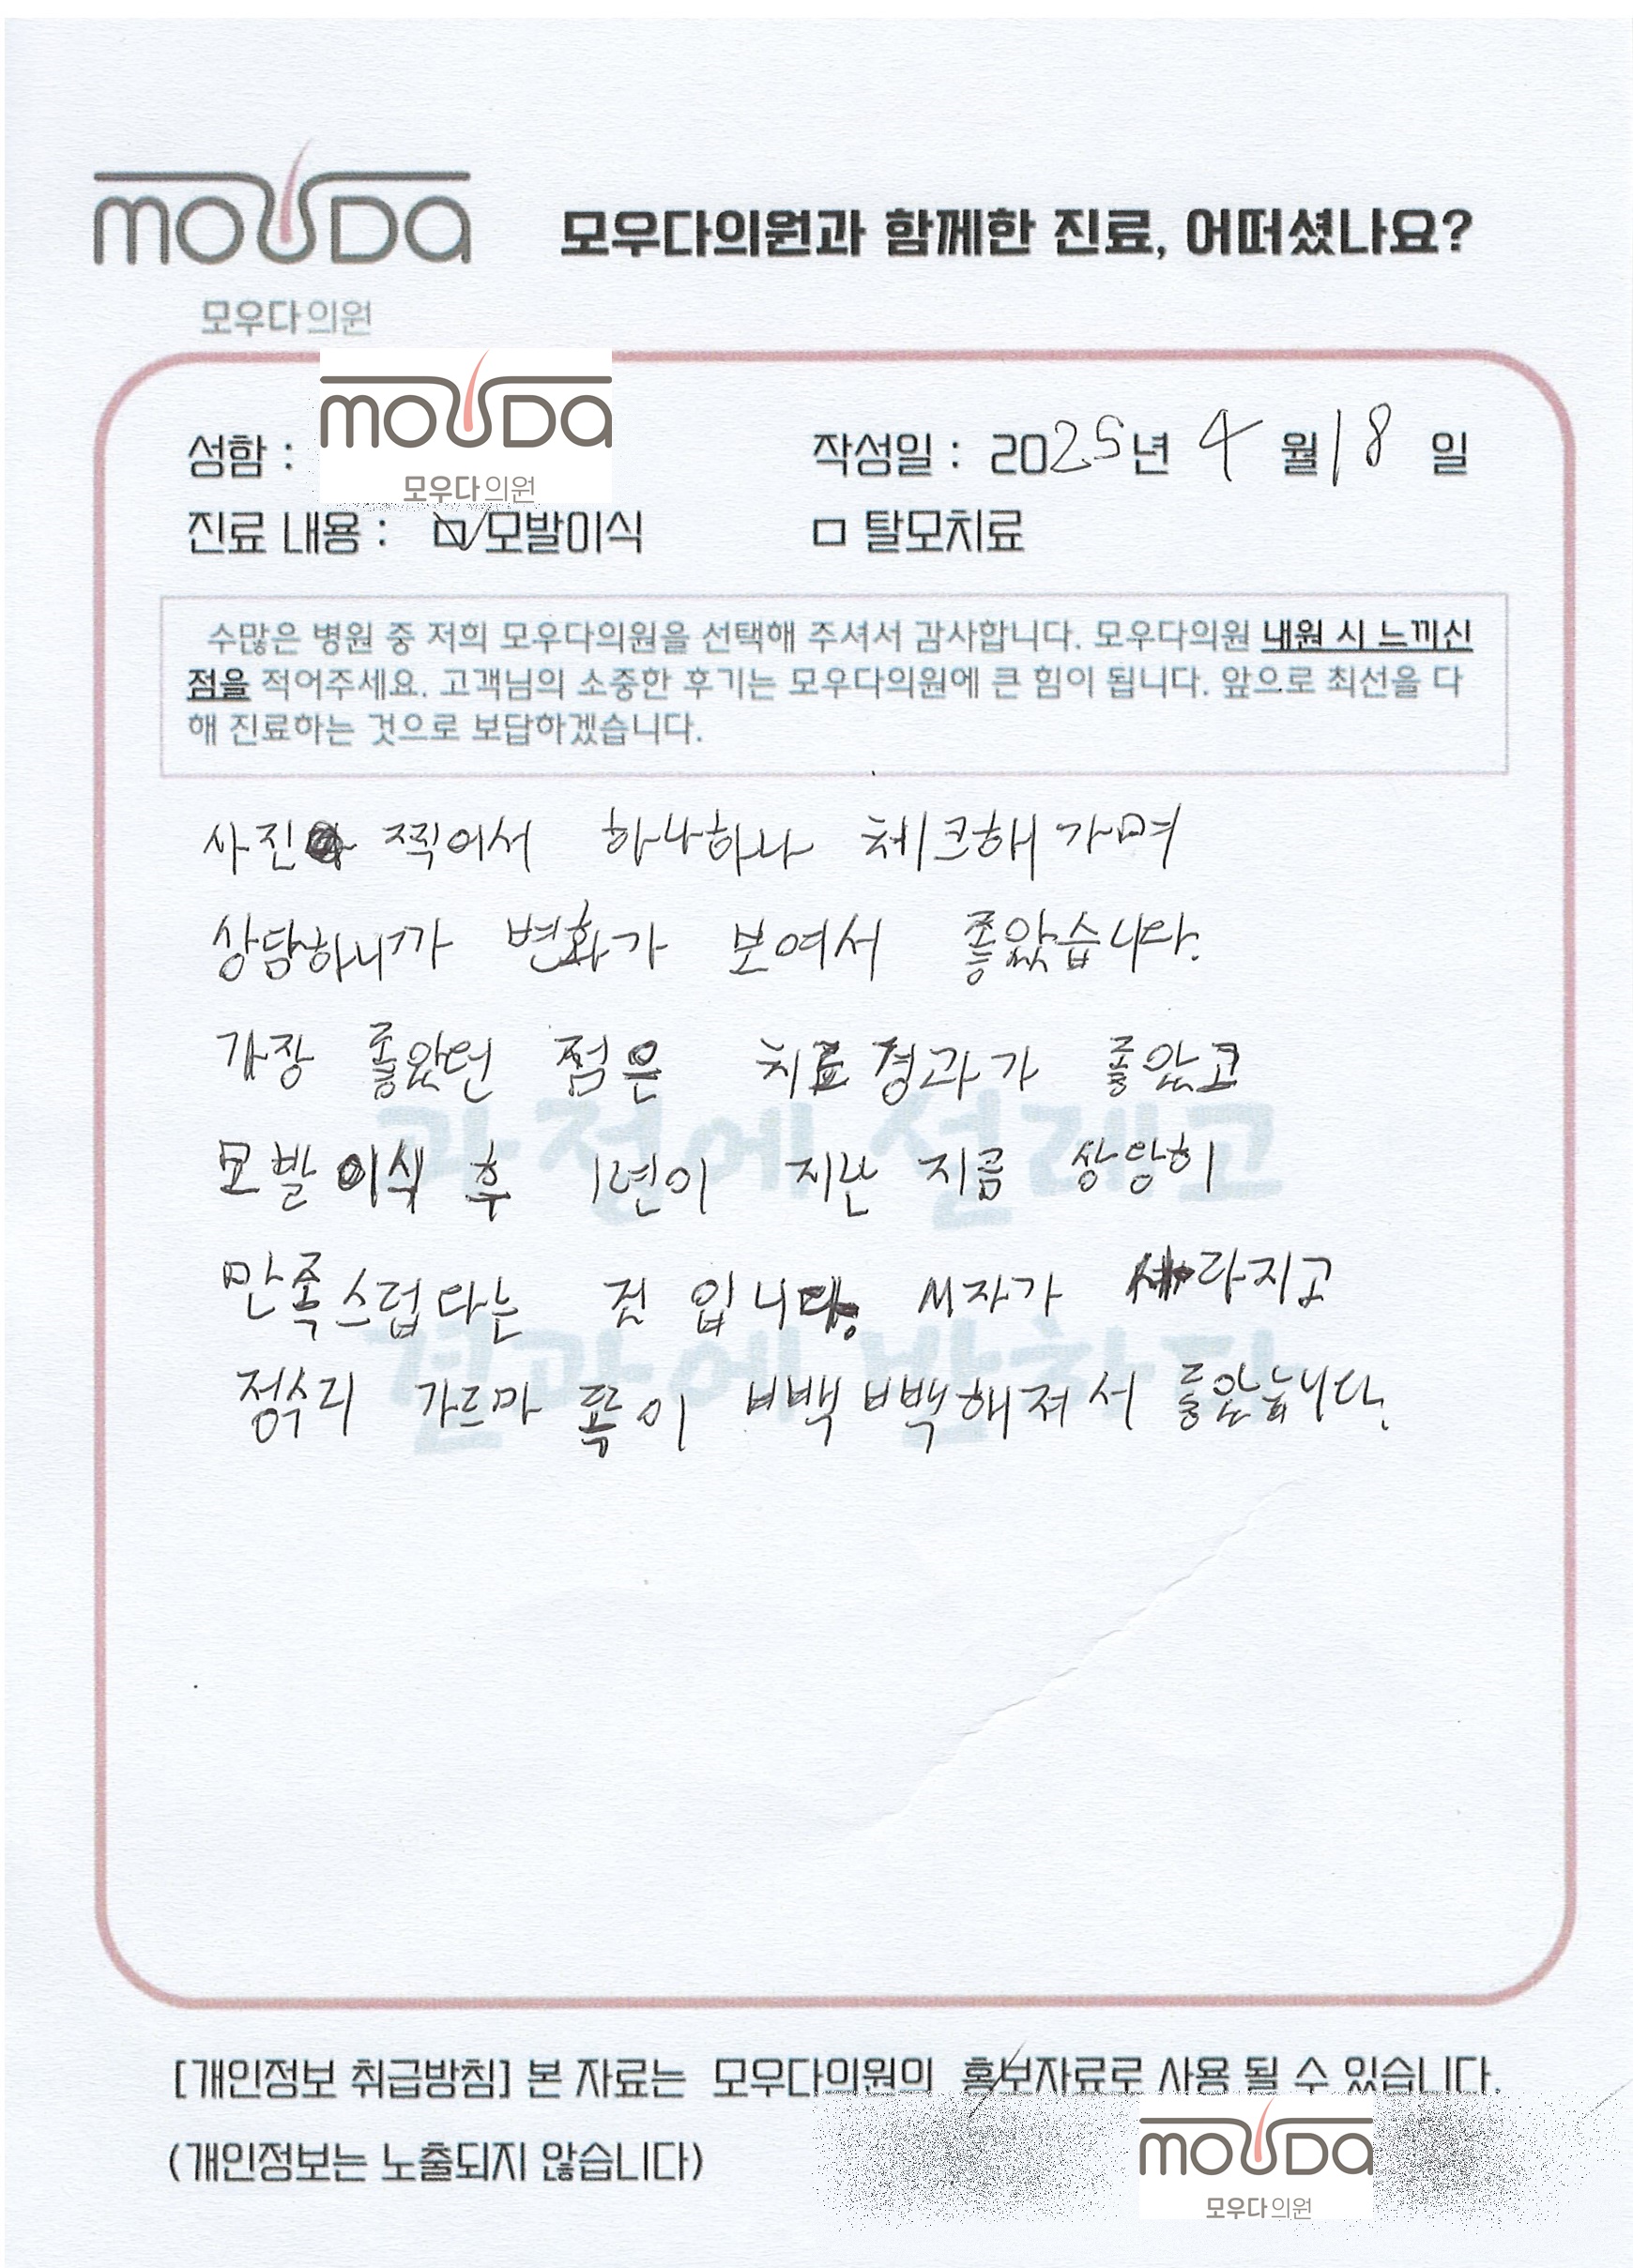 mouda
모우다의원과 함께한 진료, 어떠셨나요?
모우다의원
mouda
모우다의원
성함 :
작성일 : 2025년 4월 18일
진료 내용 : ☑ 모발이식 □ 탈모치료
수많은 병원 중 저희 모우다의원을 선택해 주셔서 감사합니다. 모우다의원 내원 시 느끼신
점을 적어주세요. 고객님의 소중한 후기는 모우다의원에 큰 힘이 됩니다. 앞으로 최선을 다
해 진료하는 것으로 보답하겠습니다.
사진 찍어서 하나하나 체크해 가며
상담하니까 변화가 보여서 좋았습니다.
가장 좋았던 점은 치료 경과가 좋았고
모발이식 후 1년이 지난 지금 상당히
만족스럽다는 것 입니다. M자가 사라지고
정수리 가르마 쪽이 빽빽해져서 좋았습니다.
과정에 설레고
결과에 반하다
[개인정보 취급방침] 본 자료는 모우다의원의 홍보자료로 사용 될 수 있습니다.
(개인정보는 노출되지 않습니다)
mouda
모우다의원